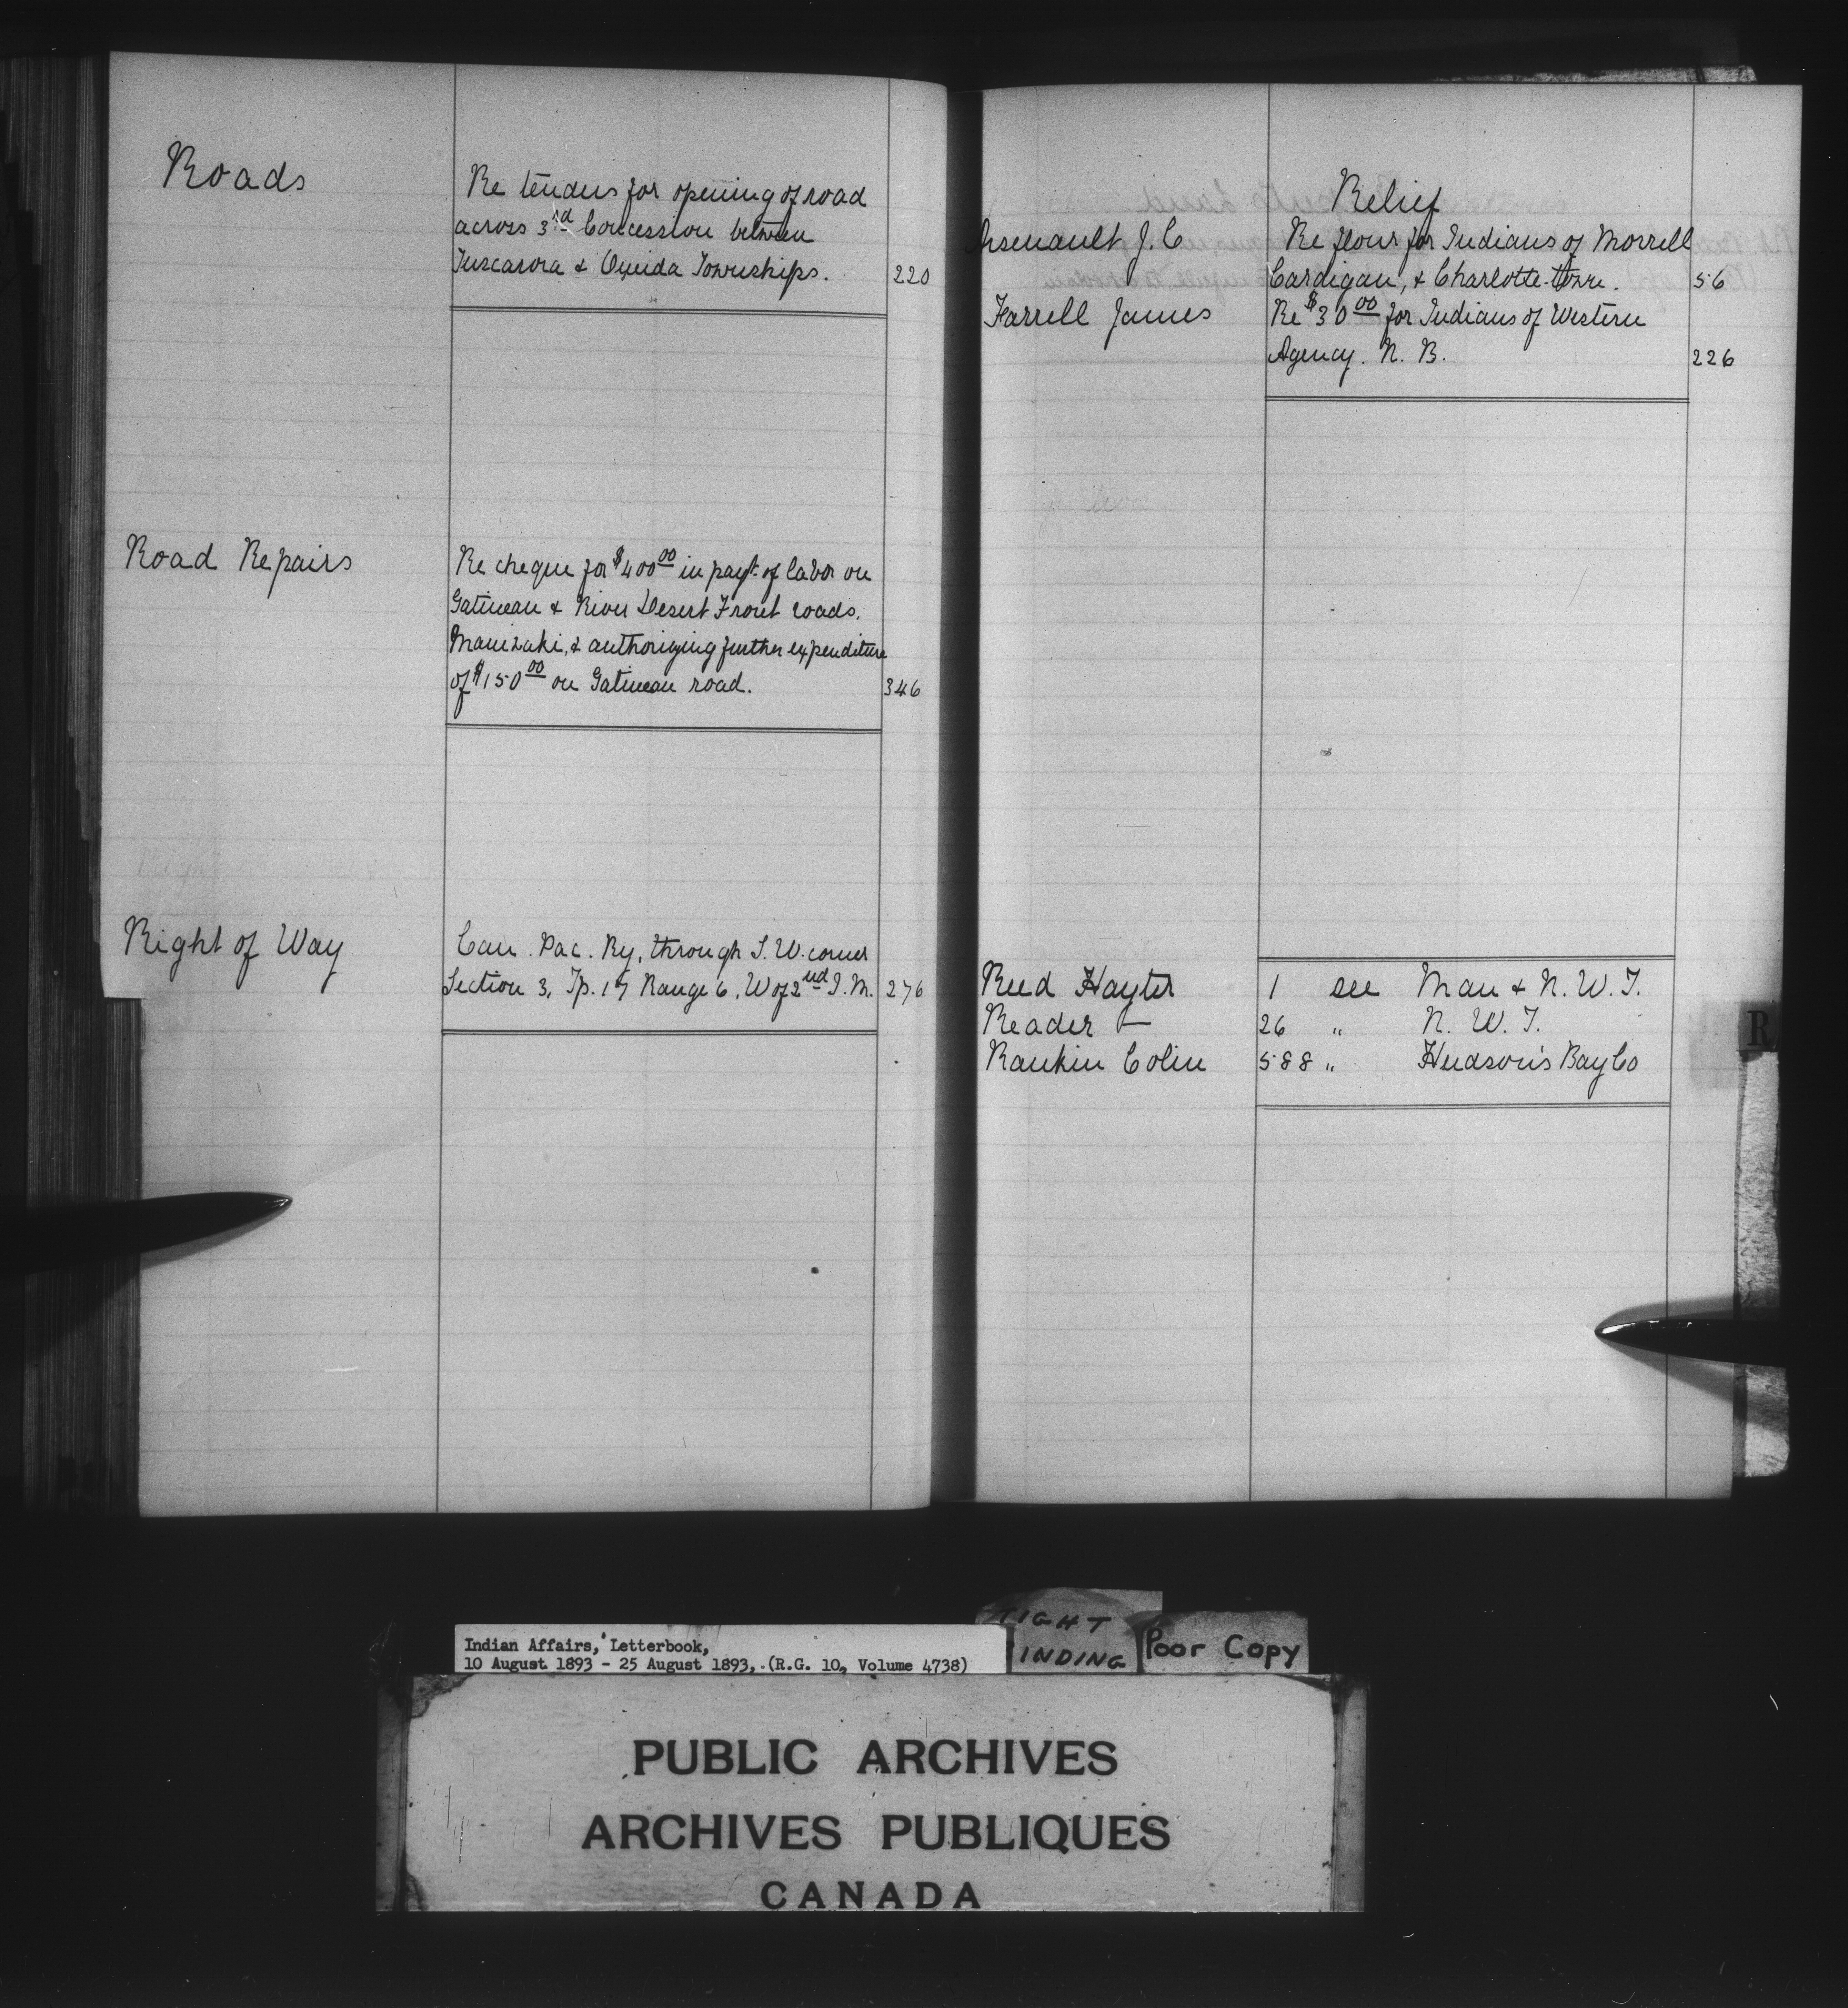 Roads
Re tenders for opening of road
across 3rd Concession between
Tuscarora & Oneida Townships. 220
Road Repairs
Re cheque for $400 00 in payt. of labor on
Gatineau & River Desert Front roads,
Maniwaki, & authorizing further expenditure
of $150 00 on Gatineau road. 346
Right of Way
Can. Pac. Ry, through S. W. corner
Section 3, Tp. 17 Range 6, W of 2nd I. M. 276
Relief
Arsenault J. C Re flour for Indians of Morrell
Cardigan, & Charlotte-town. 56
Farrell James Re $30 00 for Indians of Western
Agency. N. B. 226
Reed Hayter 1 see Man & N. W. T.
Reader — 26 " N. W. T.
Rankin Colin 588 " Hudson's Bay Co
R
Indian Affairs, Letterbook,
10 August 1893 - 25 August 1893, (R.G. 10, Volume 4738)
Poor Copy
PUBLIC ARCHIVES
ARCHIVES PUBLIQUES
CANADA